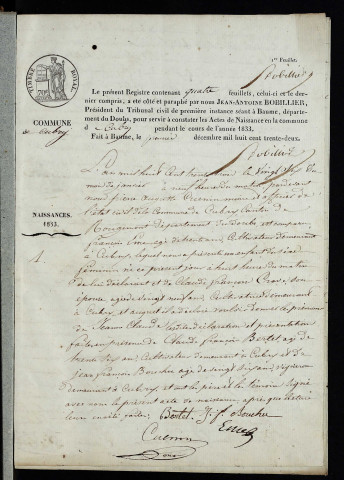 1er Feuillet.
Bobillier
TIMBRE ROYAL
Le présent Registre contenant quatre feuillets, celui-ci et le der-
nier compris, a été côté et paraphé par nous JEAN-ANTOINE BOBILLIER,
Président du Tribunal civil de première instance séant à Baume, départe-
ment du Doubs, pour servir à constater les Actes de Naissance en la commune
d pendant le cours de l'année 1833.
Fait à Baume, le premier décembre mil huit cent trente-deux.
COMMUNE
Bobillier
L'an mil huit cent trente trois le vingt
mois de janvier à neuf heures du matin pardevant
nous pierre auguste Cuenin maire et officier de
l'état civil de la Commune de Cubry Canton de
Rougemont département du doubs est comparu
NAISSANCES.
1833.
1
françois agé de trente ans Cultivateur demeurant
à Cubry, lequel nous a présenté un enfant du sexe
féminin né ce présent jour à huit heures du matin
de lui déclarant et de Claude françoise son
épouse agée de vingt neuf ans, Cultivateur demeurant
à Cubry, et auquel il a déclaré vouloir donner le prénom
de Jeanne Claude lesdites déclaration et présentation
faites en présence de Claude françois Bertet agé de
trente ans, Cultivateur demeurant à Cubry et de
jean françois Boucher agé de ans, vigneron
demeurant à Cubry et ont le père et les témoins signé
avec nous le présent acte de naissance, après que lecture
leur en a été faite.
Bertet J. f. Boucher
Cuenin